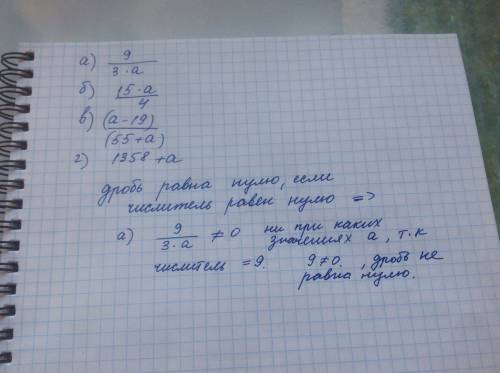 а) 9/(3·a)
б) 15·a/4
в) (a-19)/(55+a)
г) 1358+a
дробь равна нулю, если
числитель равен нулю =>
а) 9/(3·a) ≠ 0 ни при каких
значениях a, т.к
числитель = 9. 9≠0, дробь не
равна нулю.